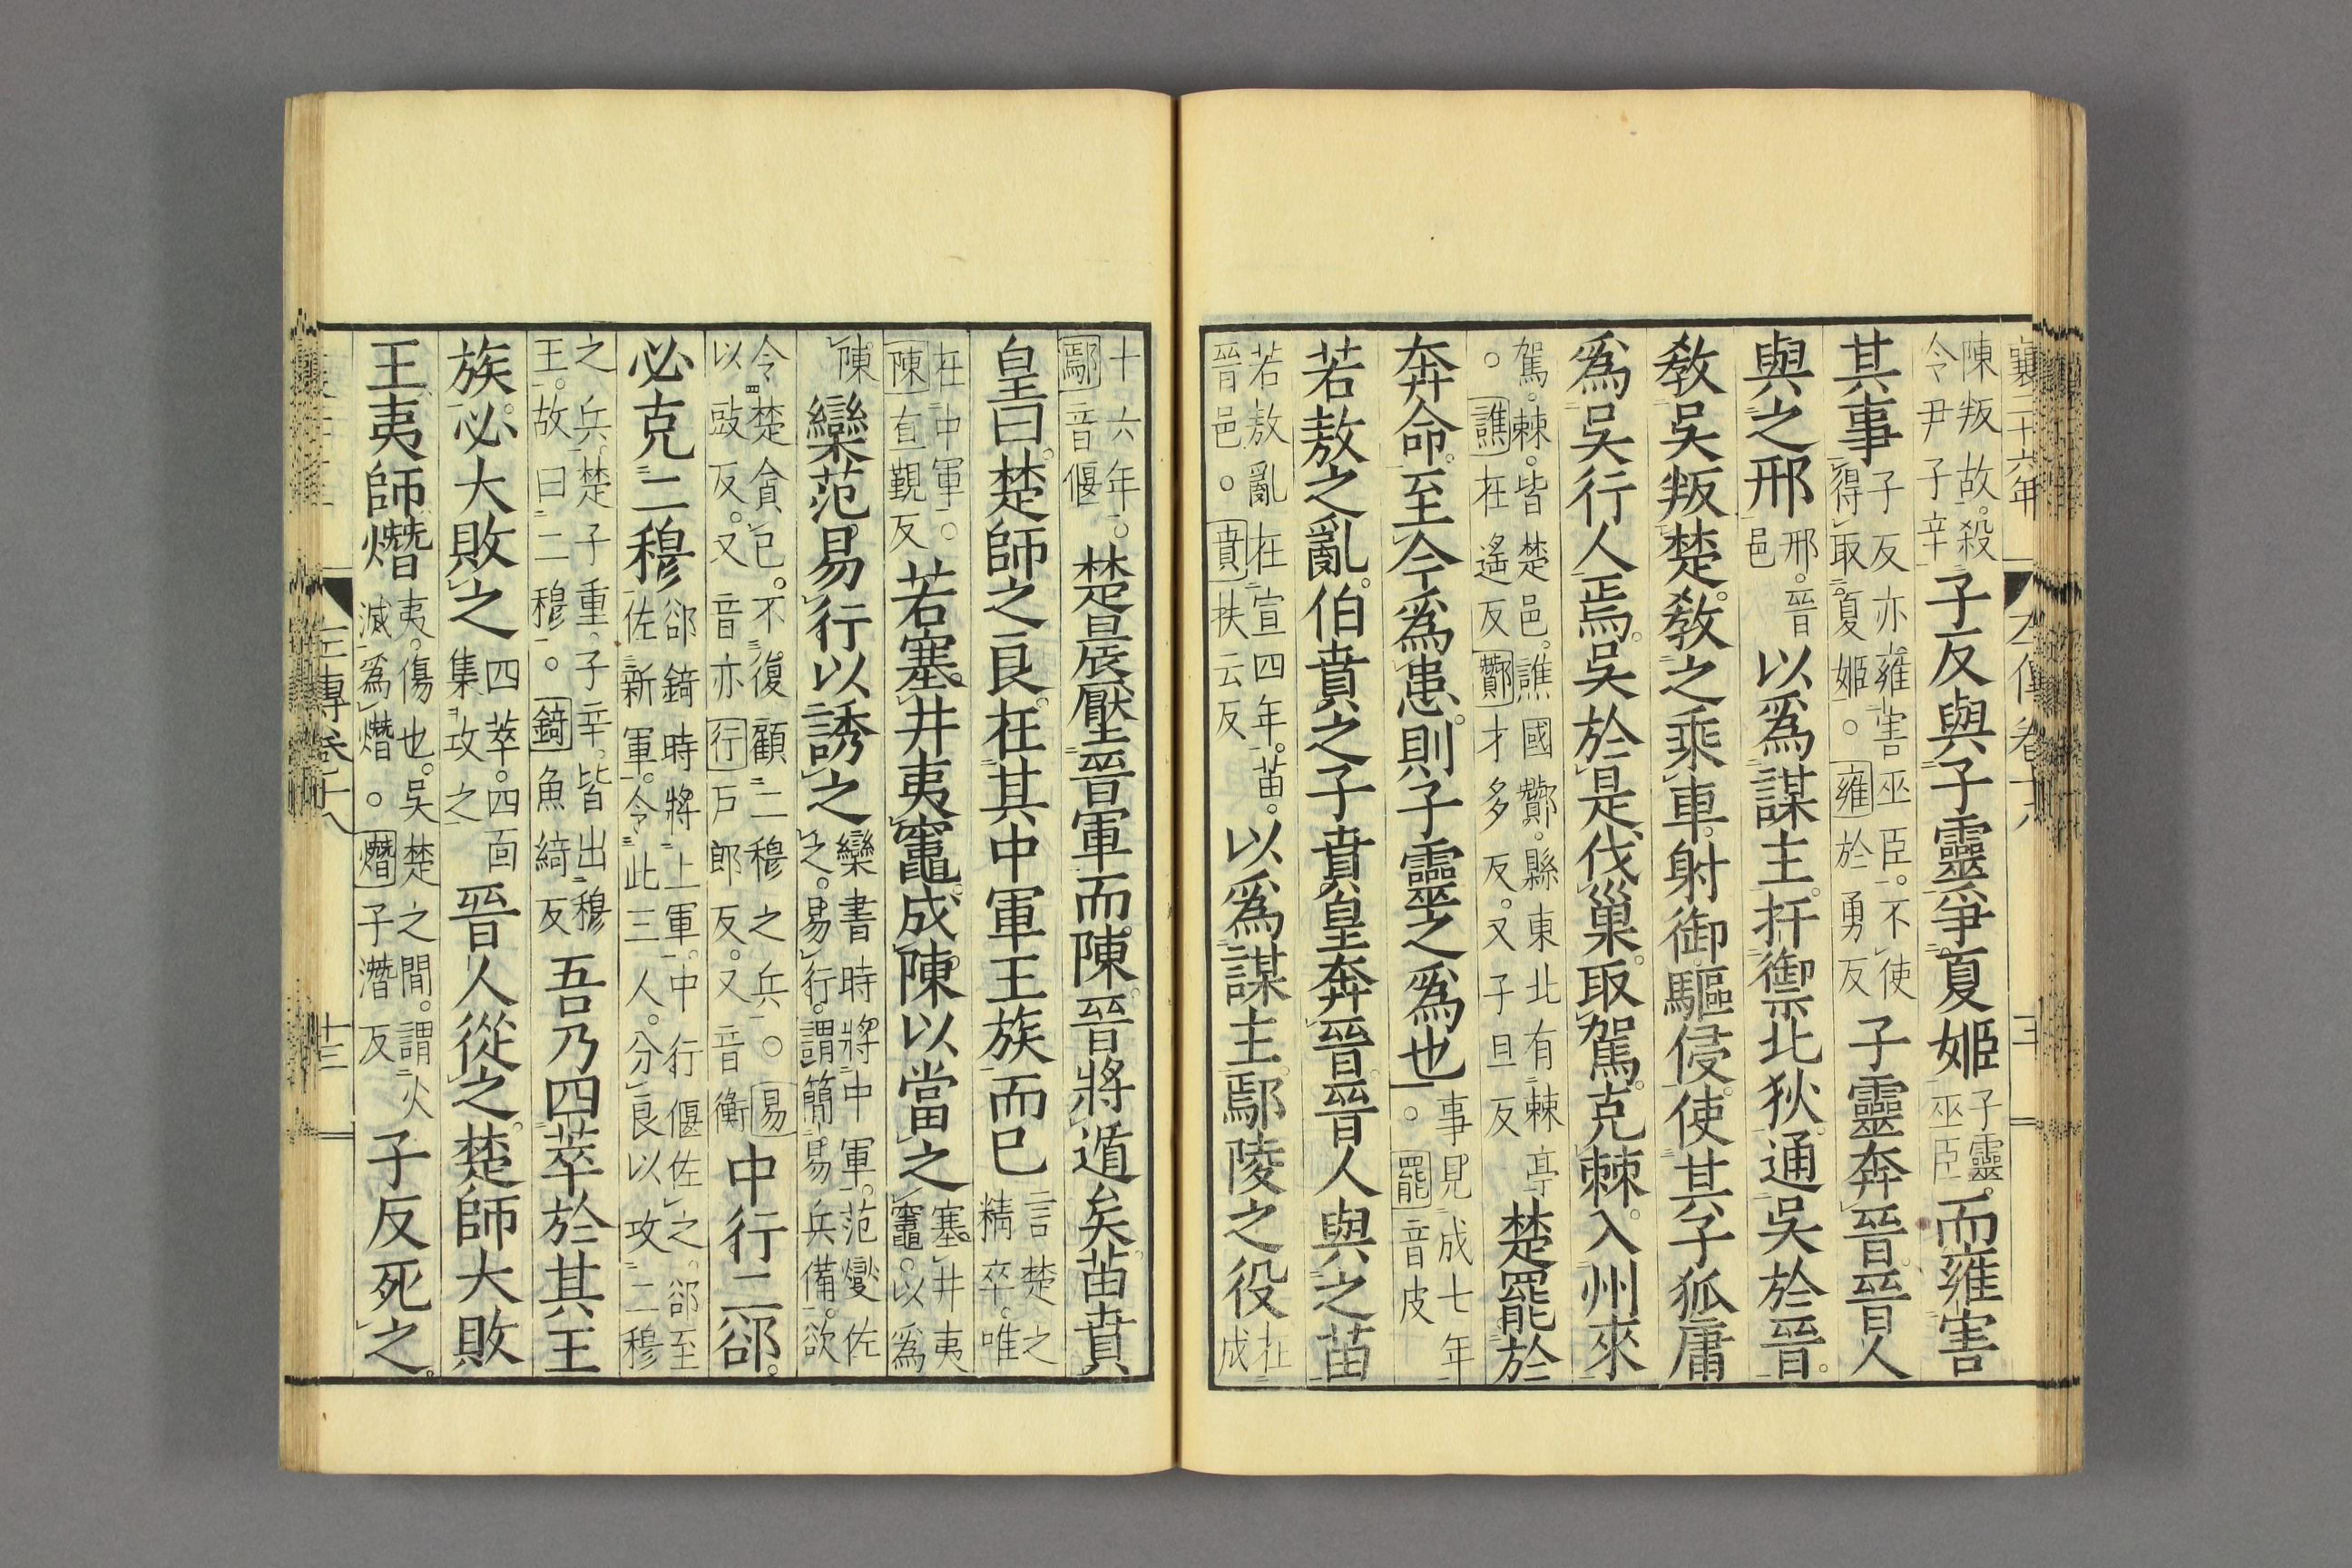 襄二十六年 左傳卷十八
陳叛故殺令尹子辛子反與子靈爭夏姬子靈巫臣而雍害
其事子反亦雍害巫臣不使得取夏姬。雍於勇反子靈奔晉晉人
與之邢邢晉邑以爲謀主扞禦北狄通吳於晉
教吳叛楚教之乘車射御驅侵使其子狐庸
爲吳行人焉吳於是伐巢取駕克棘入州來
駕棘皆楚邑譙國酇縣東北有棘亭。譙在遙反酇才多反又子旦反楚罷於
奔命至今爲患則子靈之爲也事見成七年。罷音皮
若敖之亂伯賁之子賁皇奔晉晉人與之苗
若敖亂在宣四年苗晉邑。賁扶云反以爲謀主鄢陵之役在成
十六年。鄢音偃楚晨壓晉軍而陳晉將遁矣苗賁
皇曰楚師之良在其中軍王族而已言楚之精卒唯
在中軍。陳直覲反若塞井夷竈成陳以當之塞井夷竈以爲
陳欒范易行以誘之欒書時將中軍范燮佐之易行謂簡易兵備欲
令楚貪已不復顧二穆之兵。易以豉反又音亦行戶郎反又音衡中行二郤
必克二穆郤錡時將上軍中行偃佐之郤至佐新軍令此三人分良以攻二穆
之兵楚子重子辛皆出穆王故曰二穆。錡魚綺反吾乃四萃於其王
族必大敗之四萃四面集攻之晉人從之楚師大敗
王夷師熸夷傷也吳楚之間謂火滅爲熸。熸子潛反子反死之
左傳卷十八 十三